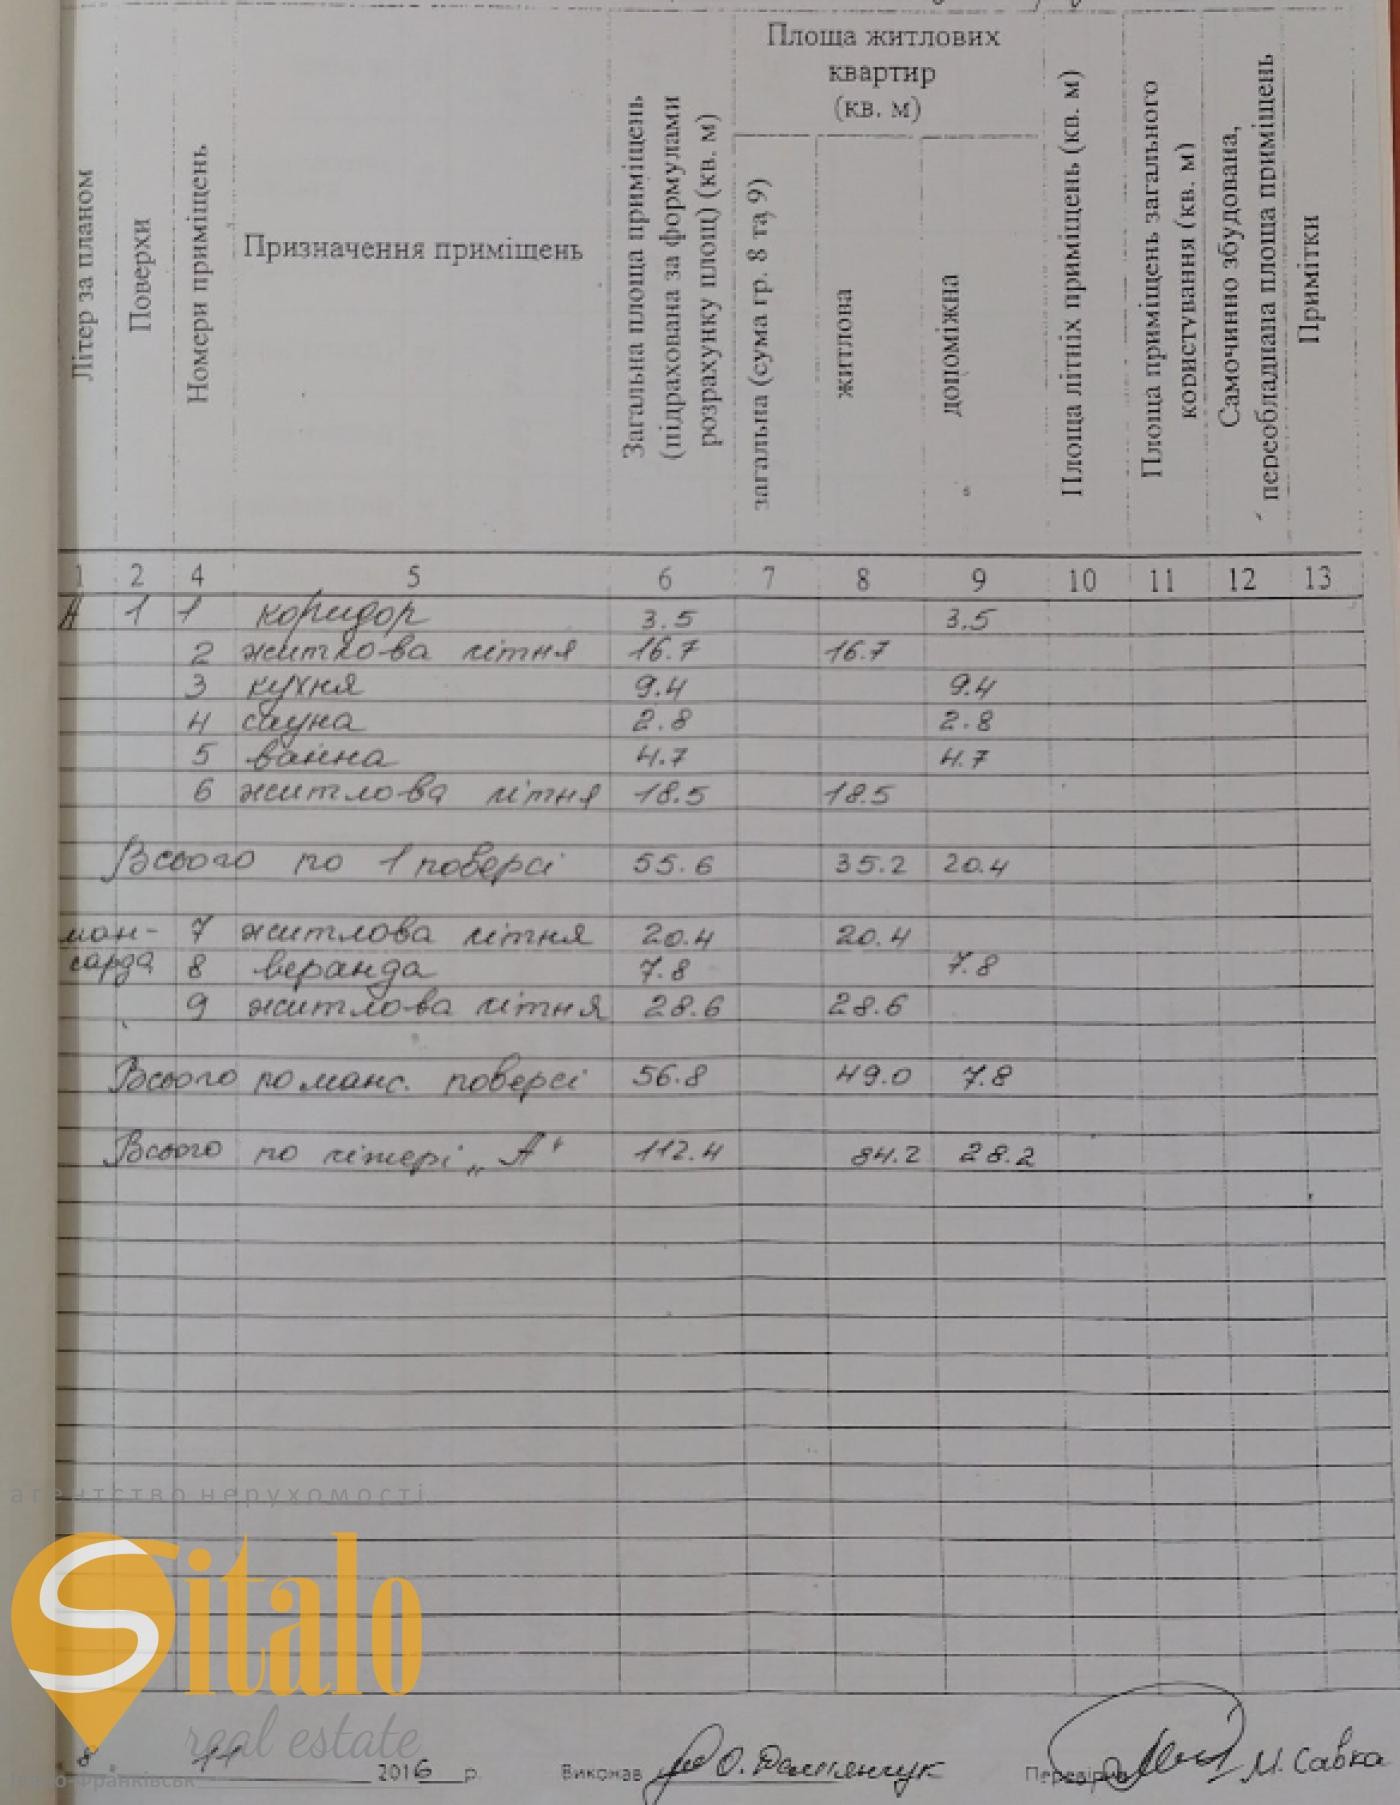 Площа житлових
квартир
(кв. м)
Літер за планом
Поверхи
Номери приміщень
Призначення приміщень
Загальна площа приміщень
(підрахована за формулами
розрахунку площ) (кв. м)
загальна (сума гр. 8 та 9)
житлова
допоміжна
Площа літніх приміщень (кв. м)
Площа приміщень загального
користування (кв. м)
Самочинно збудована,
переобладнана площа приміщень
Примітки
1 2 4 5 6 7 8 9 10 11 12 13
А 1 1 коридор 3.5 3.5
2 житлова літня 16.7 16.7
3 кухня 9.4 9.4
4 сауна 2.8 2.8
5 ванна 4.7 4.7
6 житлова літня 18.5 18.5
Всього по 1 поверсі 55.6 35.2 20.4
ман- 7 житлова літня 20.4 20.4
сарда 8 веранда 7.8 7.8
9 житлова літня 28.6 28.6
Всього по манс. поверсі 56.8 49.0 7.8
Всього по літері „А" 112.4 84.2 28.2
агентство нерухомості
Sitalo
real estate
8 11 2016 р. Виконав О. Дем'янчук Перевірив М. Савка
Івано-Франківськ